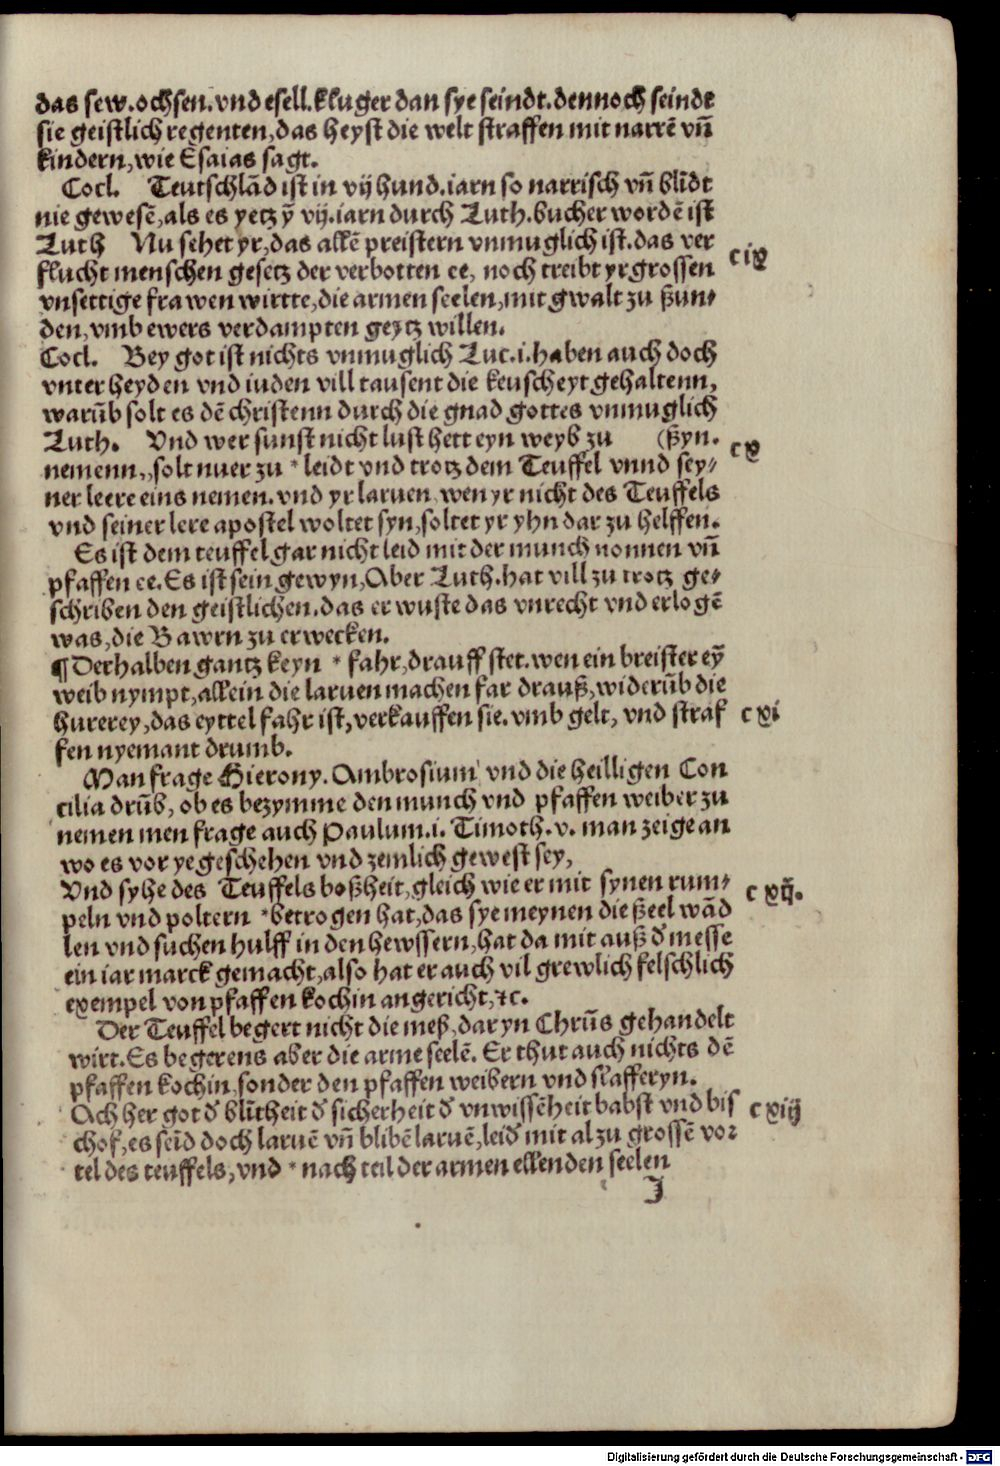 das sew.ochsen.vnd esell.kluger dan sye seindt.dennoch seindt
sie geistlich regenten,das heyst die welt straffen mit narrē vñ
kindern,wie Esaias sagt.
Cocl. Teutschlād ist in vij hund.iarn so narrisch vñ blīdt
nie gewesē,als es yetz ȳ vij.iarn durch Luth.bucher wordē ist
Luth Nu sehet yr,das allē preistern vnmuglich ist.das ver
flucht menschen gesetz der verbotten ee, noch treibt yr grossen
cix
vnsettige frawen wirtte,die armen seelen,mit gwalt zu ßun⸗
den,vmb ewers verdampten geytz willen.
Cocl. Bey got ist nichts vnmuglich Luc.i.haben auch doch
vnter heyden vnd iuden vill tausent die keuscheyt gehaltenn,
warūb solt es dē christenn durch die gnad gottes vnmuglich
Luth. Vnd wer sunst nicht lust hett eyn weyb zu (ßyn.
cx
nemenn,,solt nuer zu * leidt vnd trotz dem Teuffel vnnd sey⸗
ner leere eins nemen.vnd yr laruen,wen yr nicht des Teuffels
vnd seiner lere apostel woltet syn,soltet yr yhn dar zu helffen.
Es ist dem teuffel gar nicht leid mit der munch nonnen vñ
pfaffen ee.Es ist sein gewyn,Aber Luth.hat vill zu trotz ge⸗
schriben den geistlichen.das er wuste das vnrecht vnd erlogē
was,die Bawrn zu erwecken.
¶Derhalben gantz keyn * fahr,drauff stet.wen ein breister eȳ
weib nympt,allein die laruen machen far drauß,widerūb die
hurerey,das eyttel fahr ist,verkauffen sie.vmb gelt, vnd straf
cxi
fen nyemant drumb.
Man frage Hierony.Ambrosium vnd die heilligen Con
cilia drūb, ob es bezymme den munch vnd pfaffen weiber zu
nemen men frage auch Paulum.i. Timoth.v. man zeige an
wo es vor ye geschehen vnd zemlich gewest sey,
Vnd syhe des Teuffels boßheit,gleich wie er mit synen rum⸗
cxij.
peln vnd poltern *betrogen hat,das sye meynen die ßeel wād
len vnd suchen hulff in den hewssern,hat da mit auß đ messe
ein iar marck gemacht,also hat er auch vil grewlich felschlich
exempel von pfaffen kochin angericht,⁊c.
Der Teuffel begert nicht die meß,dar yn Chrūs gehandelt
wirt.Es begerens aber die arme seelē. Er thut auch nichts dē
pfaffen kochin,sonder den pfaffen weibern vnd slafferyn.
Ach her got đ blītheit đ sicherheit đ vnwissēheit babst vnd bis
cxiij
chof,es seīd doch laruē vñ blibē laruē,leiđ mit al zu grossē vor
tel des teuffels,vnd * nach teil der armen ellenden seelen
J
Digitalisierung gefördert durch die Deutsche Forschungsgemeinschaft - DFG